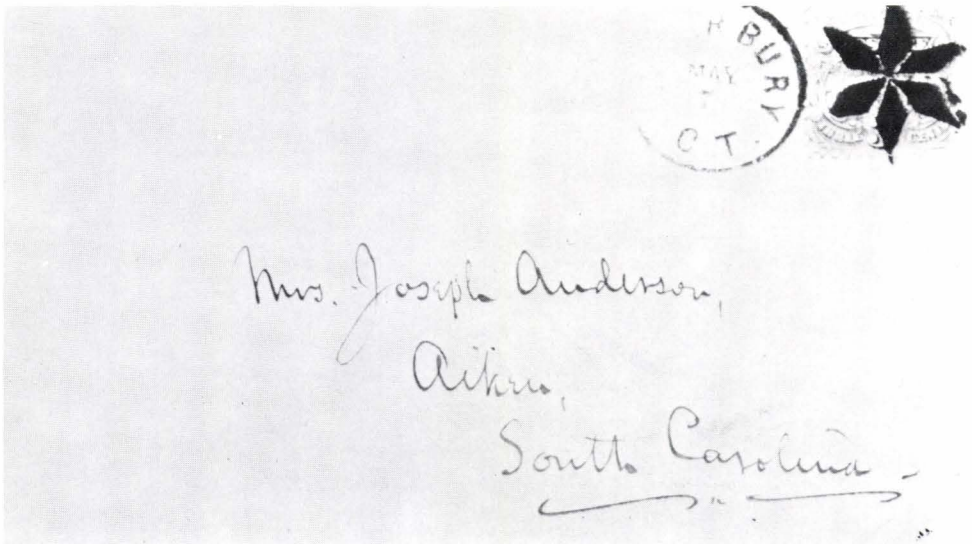 R BURY
MAY
C T.
Mrs. Joseph Anderson,
Aiken,
South Carolina